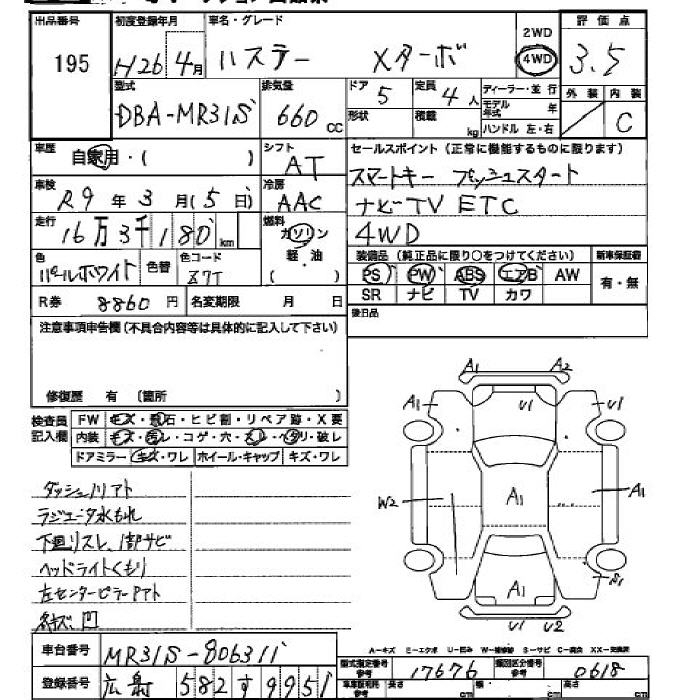 出品番号 195
初度登録年月 H26年 4月
車名・グレード ハスラー Xターボ
2WD 4WD
評価点 3.5
外装 内装 C
型式 DBA-MR31S
排気量 660 CC
ドア 5 形状
定員 4人 積載 kg
ディーラー・並行
モデル年式 年
ハンドル 左・右
車歴 自家用・( )
シフト AT
セールスポイント(正常に機能するものに限ります)
スマートキー プッシュスタート
ナビ TV ETC
4WD
車検 R9年 3月(5日)
冷房 AAC
走行 16万3千180km
燃料 ガソリン 軽・油 ( )
色 パールホワイト 色替 色コード Z7T
装備品(純正品に限り○をつけてください) 新車保証書
PS PW ABS エアB AW 有・無
SR ナビ TV カワ
R券 8860円 名変期限 月 日
後日品
注意事項申告欄(不具合内容等は具体的に記入して下さい)
修復歴 有 (箇所 )
検査員記入欄
FW キズ・飛石・ヒビ割・リペア跡・X要
内装 キズ・汚レ・コゲ・穴・スレ・ヘタリ・破レ
ドアミラー キズ・ワレ ホイール・キャップ キズ・ワレ
ダッシュ川アト
ラジエータ水もれ
下廻リスレ、1部サビ
ヘッドライトくもり
左センターピラーPアト
線キズ、凹
A1 A2
A1 U1 U1
W2 A1 A1
A1 S1
U1 U2
A-キズ E-エクボ U-凹み W-補修跡 S-サビ C-腐食 XX-交換済
車台番号 MR31S-806311
型式指定番号 参考 17676 類別区分番号 参考 0618
登録番号 広島 582す9951
車庫証明用 参考 長さ cm 幅 cm 高さ cm